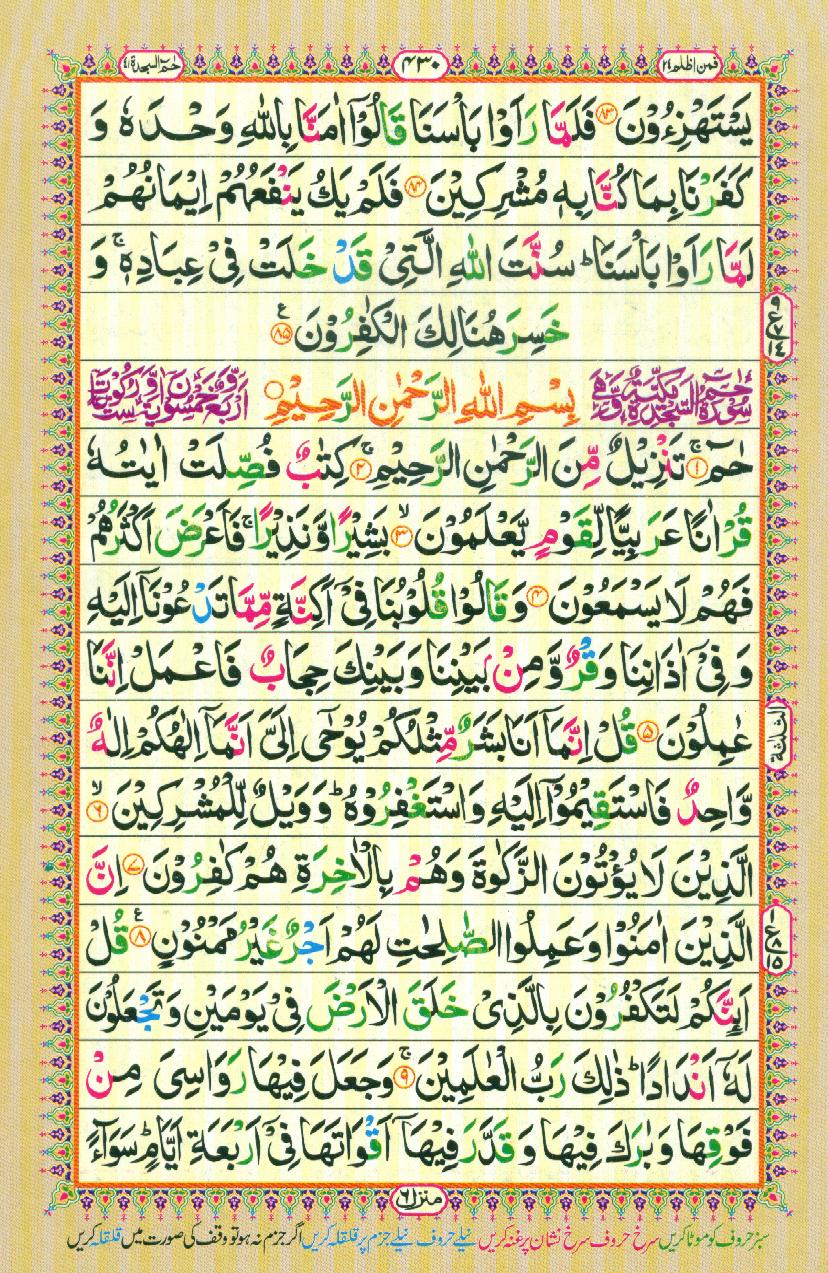 فمن اظلم ۲۴
۴۳۰
حٰمٓ السجدة ۴۱
يَسْتَهْزِءُوْنَ ﴿۸۳﴾ فَلَمَّا رَاَوْا بَاْسَنَا قَالُوْٓا اٰمَنَّا بِاللّٰهِ وَحْدَهٗ وَ
كَفَرْنَا بِمَا كُنَّا بِهٖ مُشْرِكِيْنَ ﴿۸۴﴾ فَلَمْ يَكُ يَنْفَعُهُمْ اِيْمَانُهُمْ
لَمَّا رَاَوْا بَاْسَنَا ؕ سُنَّتَ اللّٰهِ الَّتِيْ قَدْ خَلَتْ فِيْ عِبَادِهٖ ۚ وَ
خَسِرَ هُنَالِكَ الْكٰفِرُوْنَ ﴿۸۵﴾
۹ ع ۱۴
سُوْرَةُ حٰمٓ السَّجْدَةِ مَكِّيَّةٌ وَّهِيَ بِسْمِ اللّٰهِ الرَّحْمٰنِ الرَّحِيْمِ اَرْبَعٌ وَّخَمْسُوْنَ اٰيَةً وَّسِتُّ رُكُوْعَاتٍ
حٰمٓ ﴿۱﴾ۚ تَنْزِيْلٌ مِّنَ الرَّحْمٰنِ الرَّحِيْمِ ﴿۲﴾ۚ كِتٰبٌ فُصِّلَتْ اٰيٰتُهٗ
قُرْاٰنًا عَرَبِيًّا لِّقَوْمٍ يَّعْلَمُوْنَ ﴿۳﴾ۙ بَشِيْرًا وَّنَذِيْرًا ۚ فَاَعْرَضَ اَكْثَرُهُمْ
فَهُمْ لَا يَسْمَعُوْنَ ﴿۴﴾ وَقَالُوْا قُلُوْبُنَا فِيْٓ اَكِنَّةٍ مِّمَّا تَدْعُوْنَاۤ اِلَيْهِ
وَفِيْٓ اٰذَانِنَا وَقْرٌ وَّمِنْۢ بَيْنِنَا وَبَيْنِكَ حِجَابٌ فَاعْمَلْ اِنَّنَا
عٰمِلُوْنَ ﴿۵﴾ قُلْ اِنَّمَاۤ اَنَا بَشَرٌ مِّثْلُكُمْ يُوْحٰٓى اِلَيَّ اَنَّمَاۤ اِلٰهُكُمْ اِلٰهٌ
الثلثة
وَّاحِدٌ فَاسْتَقِيْمُوْٓا اِلَيْهِ وَاسْتَغْفِرُوْهُ ؕ وَوَيْلٌ لِّلْمُشْرِكِيْنَ ﴿۶﴾ۙ
الَّذِيْنَ لَا يُؤْتُوْنَ الزَّكٰوةَ وَهُمْ بِالْاٰخِرَةِ هُمْ كٰفِرُوْنَ ﴿۷﴾ اِنَّ
الَّذِيْنَ اٰمَنُوْا وَعَمِلُوا الصّٰلِحٰتِ لَهُمْ اَجْرٌ غَيْرُ مَمْنُوْنٍ ﴿۸﴾ قُلْ
۱ ع ۱۵
اَئِنَّكُمْ لَتَكْفُرُوْنَ بِالَّذِيْ خَلَقَ الْاَرْضَ فِيْ يَوْمَيْنِ وَتَجْعَلُوْنَ
لَهٗۤ اَنْدَادًا ؕ ذٰلِكَ رَبُّ الْعٰلَمِيْنَ ﴿۹﴾ۚ وَجَعَلَ فِيْهَا رَوَاسِيَ مِنْ
فَوْقِهَا وَبٰرَكَ فِيْهَا وَقَدَّرَ فِيْهَاۤ اَقْوَاتَهَا فِيْٓ اَرْبَعَةِ اَيَّامٍ ؕ سَوَآءً
منزل ۶
سبز حروف کو موٹا کریں سرخ حروف سرخ نشان پر غنہ کریں نیلے حروف نیلے جزم پر قلقلہ کریں اگر جزم نہ ہو تو وقف کی صورت میں قلقلہ کریں